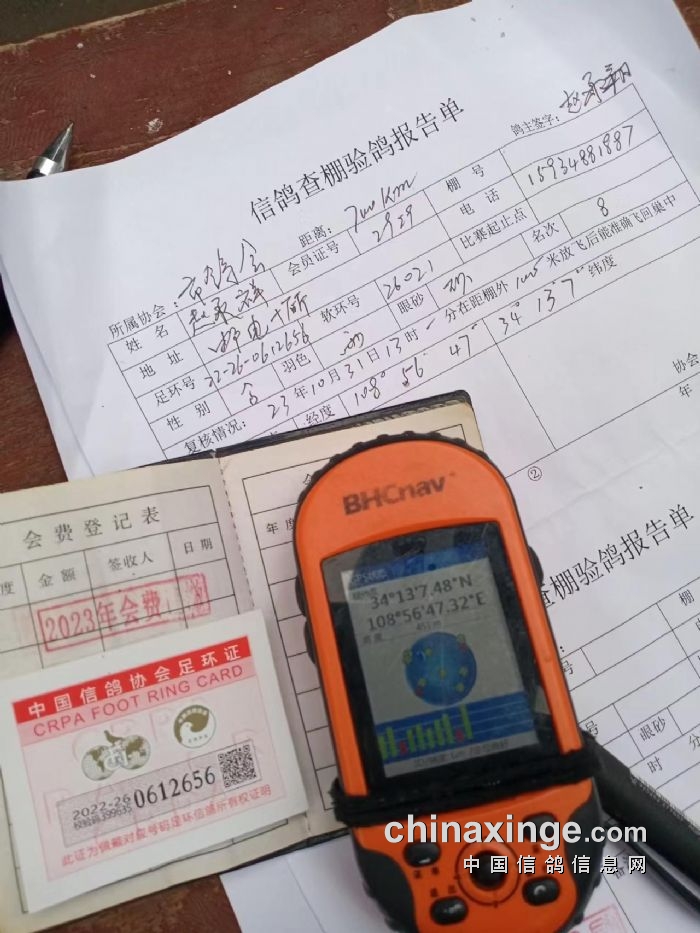 信鸽查棚验鸽报告单
鸽主签字：
所属协会：市鸽会 距离：700Km 棚号
姓名 会员证号 2929 电话 15934881887
地址 比赛起止点
足环号 22-26-0612656 软环号 26021 名次 8
性别 羽色 眼砂
复核情况：23年10月31日13时 分在距棚外 米放飞后能准确飞回巢中
经度 108° 56' 47" 34° 13' 7" 纬度
协会
年
②
会费登记表
度 金额 签收人 日期
2023年会费
年度
中国信鸽协会足环证
CRPA FOOT RING CARD
2022-26 0612656
此证为佩戴对应号码足环信鸽所有权证明
BHCnav
34°13'7.48"N
108°56'47.32"E
451m
查棚验鸽报告单
棚
眼砂
时 分
chinaxinge.com
中国信鸽信息网